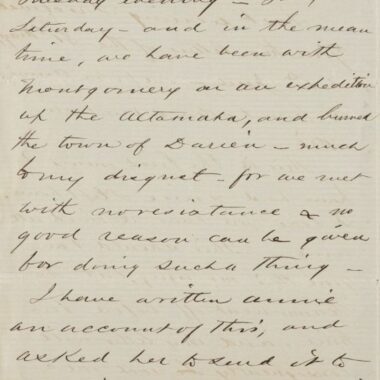 Tuesday evening –
Saturday – and in the mean
time, we have been with
Montgomery on an expedition
up the Altamaha, and burned
the town of Darien – much
to my disgust – for we met
with no resistance & no
good reason can be given
for doing such a thing –
I have written Annie
an account of this, and
asked her to send it to